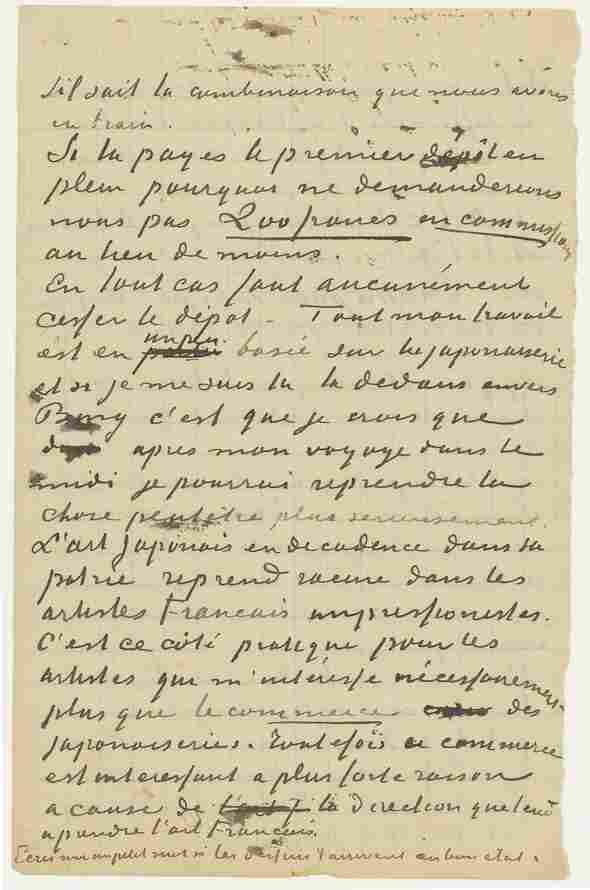 s'il sait la combinaison que nous avons
en train.
Si tu payes le premier dépôt en
plein pourquoi ne demanderions
nous pas 200 francs en commission
au lieu de moins.
En tout cas faut aucunément
cesser le dépot – Tout mon travail
est en un peu basé sur la japonaiserie
et si je me suis tu la dedans envers
Bing c'est que je crois que
apres mon voyage dans le
midi je pourrai reprendre la
chose peutêtre plus serieusement.
L'art Japonais en decadence dans sa
patrie reprend racine dans les
artistes Francais impressionistes.
C'est ce côté pratique pour les
artistes qui m'intéresse nécessairement
plus que le commerce des
japonaiseries. Toutefois ce commerce
est interessant a plus forte raison
a cause de la direction que tend
a prendre l'art Francais.
Ecris moi un petit mot si les dessins t'arrivent en bon etat.